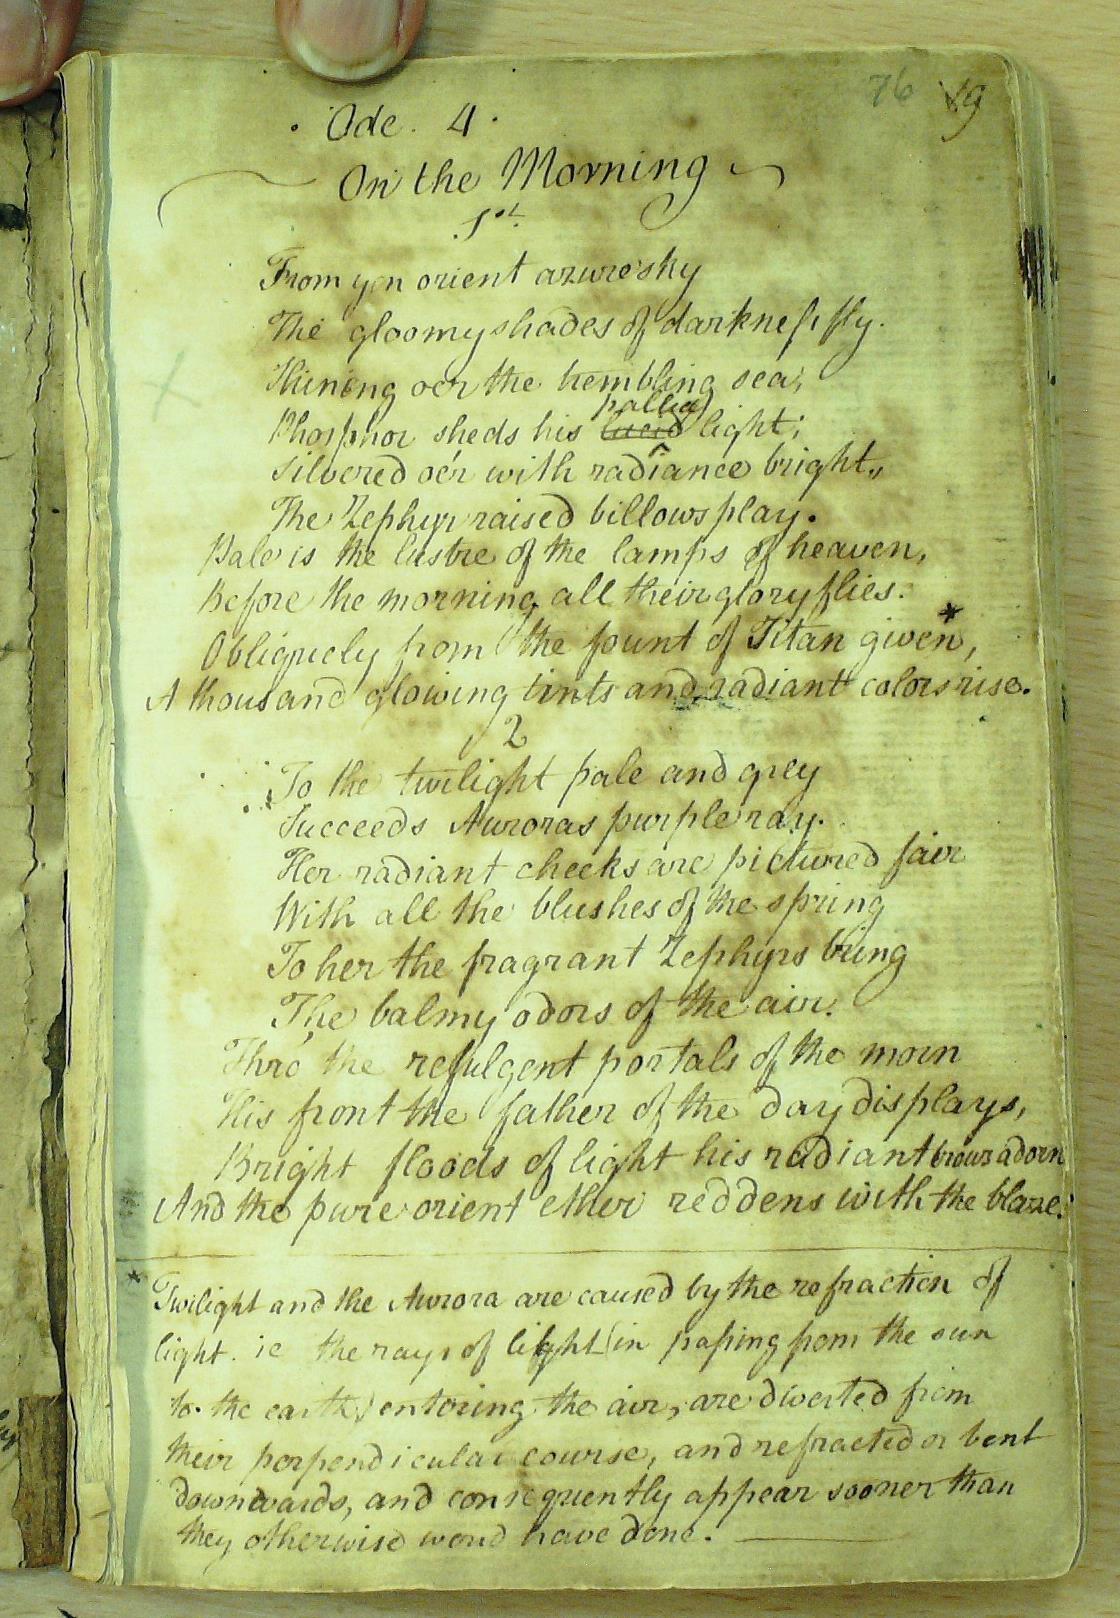 76 19
Ode. 4.
On the Morning
1st.
From yon orient azure sky
The gloomy shades of darkness fly.
Shining oer the trembling sea;
pallid
Phosphor sheds his lucid light;
Silvered oe'r with radiance bright,,
The Zephyr raised billows play.
Pale is the lustre of the lamps of heaven,
Before the morning all their glory flies.
Obliquely from the fount of Titan given, *
A thousand glowing tints and radiant colors rise.
2
To the twilight pale and grey
Succeeds Auroras purple ray.
Her radiant cheeks are pictured fair
With all the blushes of the spring
To her the fragrant Zephyrs bring
The balmy odors of the air.
Thro' the refulgent portals of the morn
His front the father of the day displays,
Bright floods of light his radiant brows adorn
And the pure orient ether reddens with the blaze.
* Twilight and the Aurora are caused by the refraction of
light. ie the rays of light (in passing from the sun
to the earth) entering the air, are diverted from
their perpendicular course, and refracted or bent
downwards, and consequently appear sooner than
they otherwise woud have done.